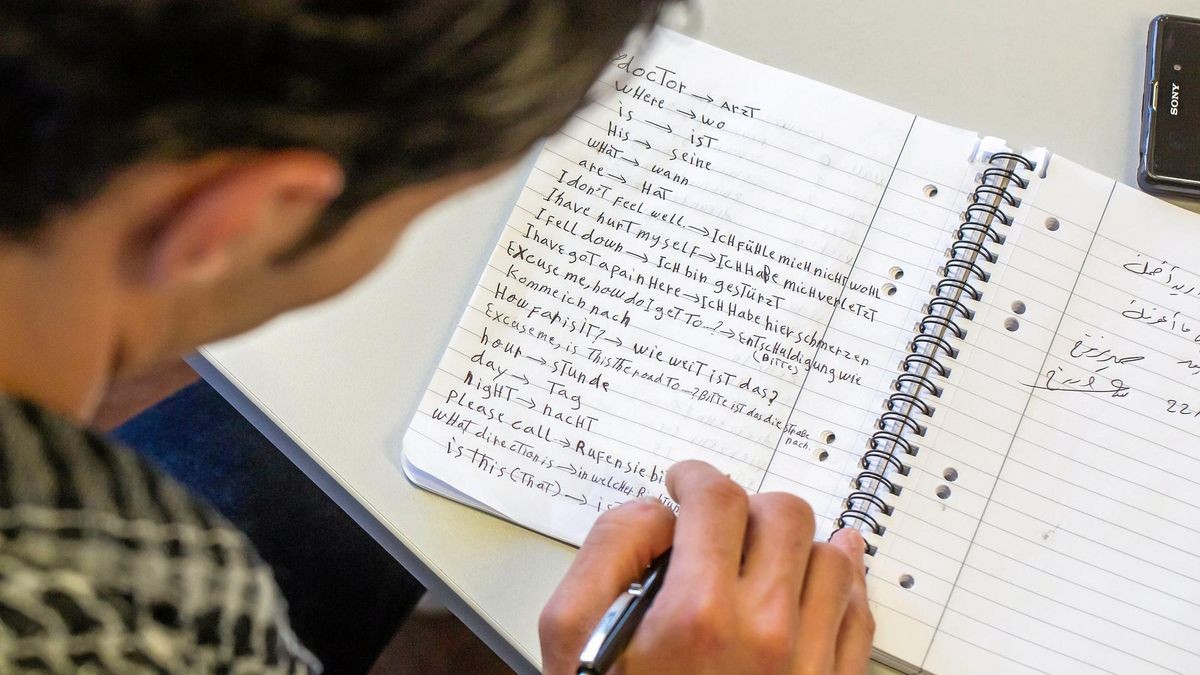 doctor → Arzt
where → wo
is → ist
His → seine
what → wann
are → Hat
I don't feel well. → Ich fühle mich nicht wohl
I have hurt myself → Ich Habe mich verletzt
I fell down → Ich bin gestürzt
I have got a pain Here → Ich Habe hier schmerzen
Excuse me, how do I get to..? → Entschuldigung wie
(Bitte)
komme ich nach
How far is it? → wie weit ist das?
Excuse me, is this the road to → Bitte ist das die straße
nach.
hour → stunde
day → Tag
night → nacht
please call → Rufen sie
what direction is → in welcher
is this (that) →
22
SONY